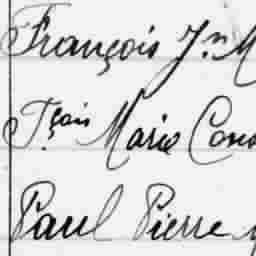 François Jn M
Fçois Marie Cons
Paul Pierre